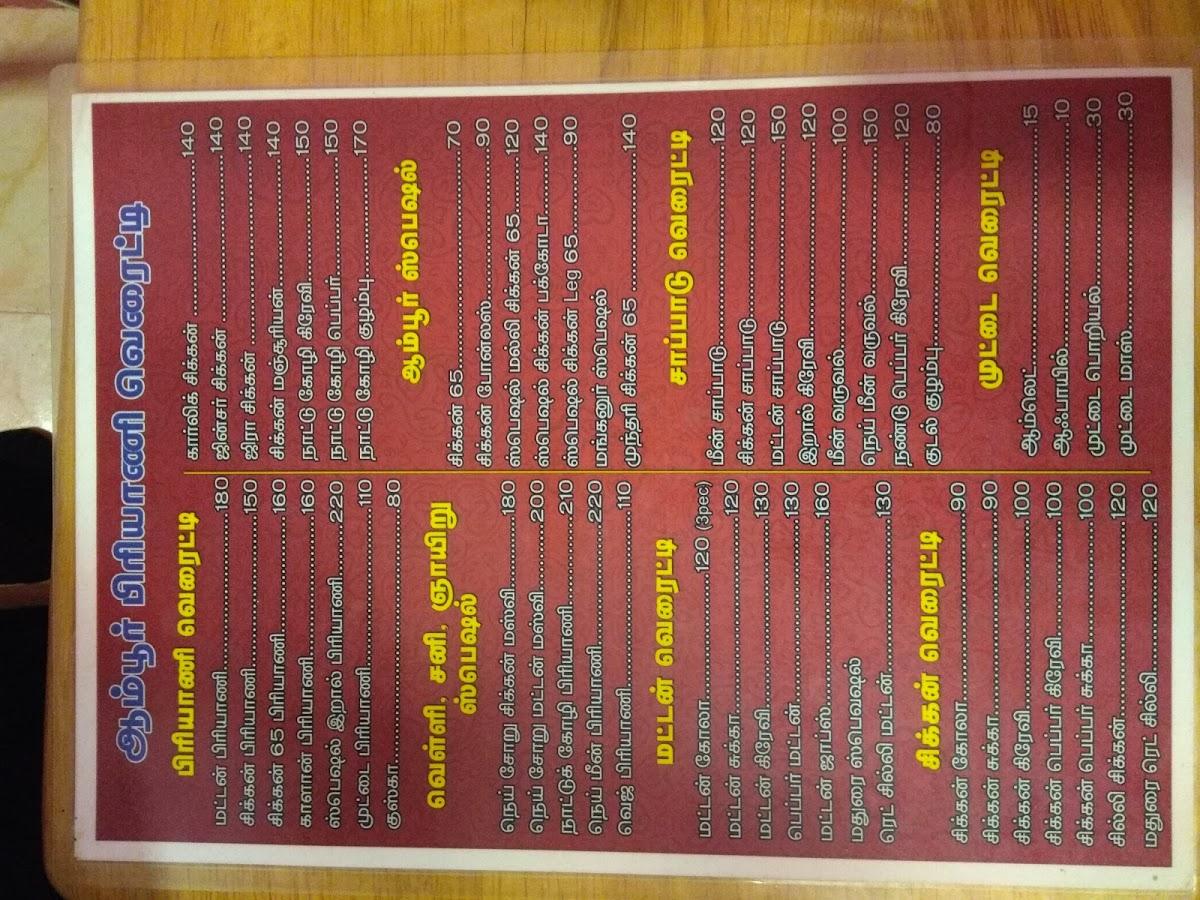 ஆம்பூர் பிரியாணி வெரைட்டி
பிரியாணி வெரைட்டி
மட்டன் பிரியாணி..................180
சிக்கன் பிரியாணி..................150
சிக்கன் 65 பிரியாணி..................160
காளான் பிரியாணி..................160
ஸ்பெஷல் இறால் பிரியாணி..........220
முட்டை பிரியாணி..................110
குஸ்கா..................80
வெள்ளி, சனி, ஞாயிறு
ஸ்பெஷல்
நெய் சோறு சிக்கன் மஸ்வி..........180
நெய் சோறு மட்டன் மஸ்வி..........200
நாட்டுக் கோழி பிரியாணி..........210
நெய் மீன் பிரியாணி..................220
வெஜ் பிரியாணி..................110
மட்டன் வெரைட்டி
மட்டன் கோலா..................120 (3pec)
மட்டன் சுக்கா..................120
மட்டன் கிரேவி..................130
பெப்பர் மட்டன்..................130
மட்டன் ஜாப்ஸ்..................160
மதுரை ஸ்பெஷல்
ரெட் சில்லி மட்டன்..................130
சிக்கன் வெரைட்டி
சிக்கன் கோலா..................90
சிக்கன் சுக்கா..................90
சிக்கன் கிரேவி..................100
சிக்கன் பெப்பர் கிரேவி..........100
சிக்கன் பெப்பர் சுக்கா..........100
சில்லி சிக்கன்..................120
மதுரை ரெட் சில்லி..................120
கார்லிக் சிக்கன்..................140
ஜின்சர் சிக்கன்..................140
ஜிரா சிக்கன்..................140
சிக்கன் மஞ்சூரியன்..................140
நாட்டு கோழி கிரேவி..................150
நாட்டு கோழி பெப்பர்..................150
நாட்டு கோழி குழம்பு..................170
ஆம்பூர் ஸ்பெஷல்
சிக்கன் 65..................70
சிக்கன் போன்லஸ்..................90
ஸ்பெஷல் மல்லி சிக்கன் 65..........120
ஸ்பெஷல் சிக்கன் பக்கோடா..........140
ஸ்பெஷல் சிக்கன் Leg 65..........90
மங்களூர் ஸ்பெஷல்
முந்தரி சிக்கன் 65..................140
சாப்பாடு வெரைட்டி
மீன் சாப்பாடு..................120
சிக்கன் சாப்பாடு..................120
மட்டன் சாப்பாடு..................150
இறால் கிரேவி..................120
மீன் வருவல்..................100
நெய் மீன் வருவல்..................150
நண்டு பெப்பர் கிரேவி..................120
குடல் குழம்பு..................80
முட்டை வெரைட்டி
ஆம்லெட்..................15
ஆஃபாயில்..................10
முட்டை பொறியல்..................30
முட்டை மாஸ்..................30